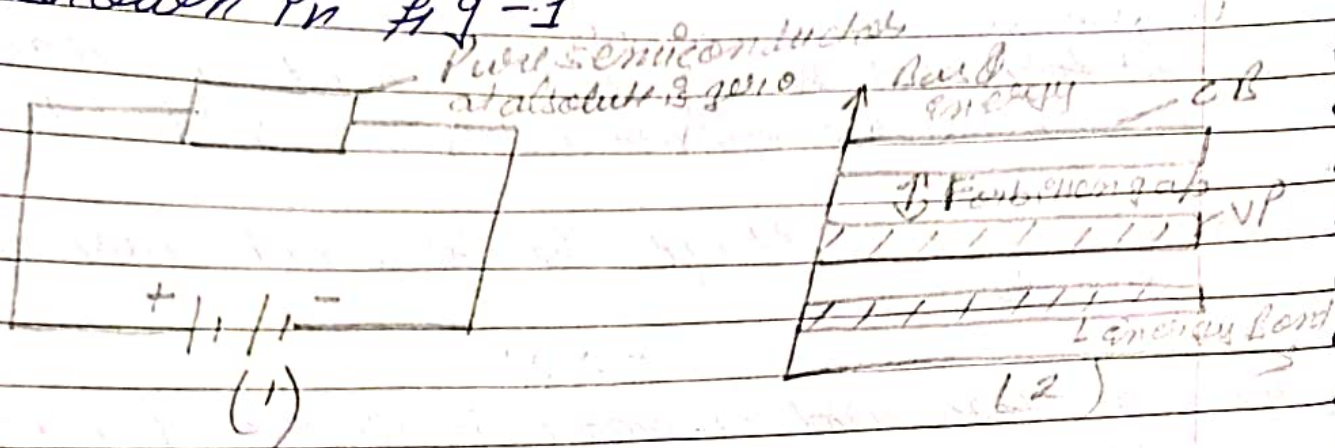 shown in fig-1
Pure semiconductor
at absolute is zero
Band
energy
CB
Forbidden gap
VP
+ -
L energy Band
(1)
(2)